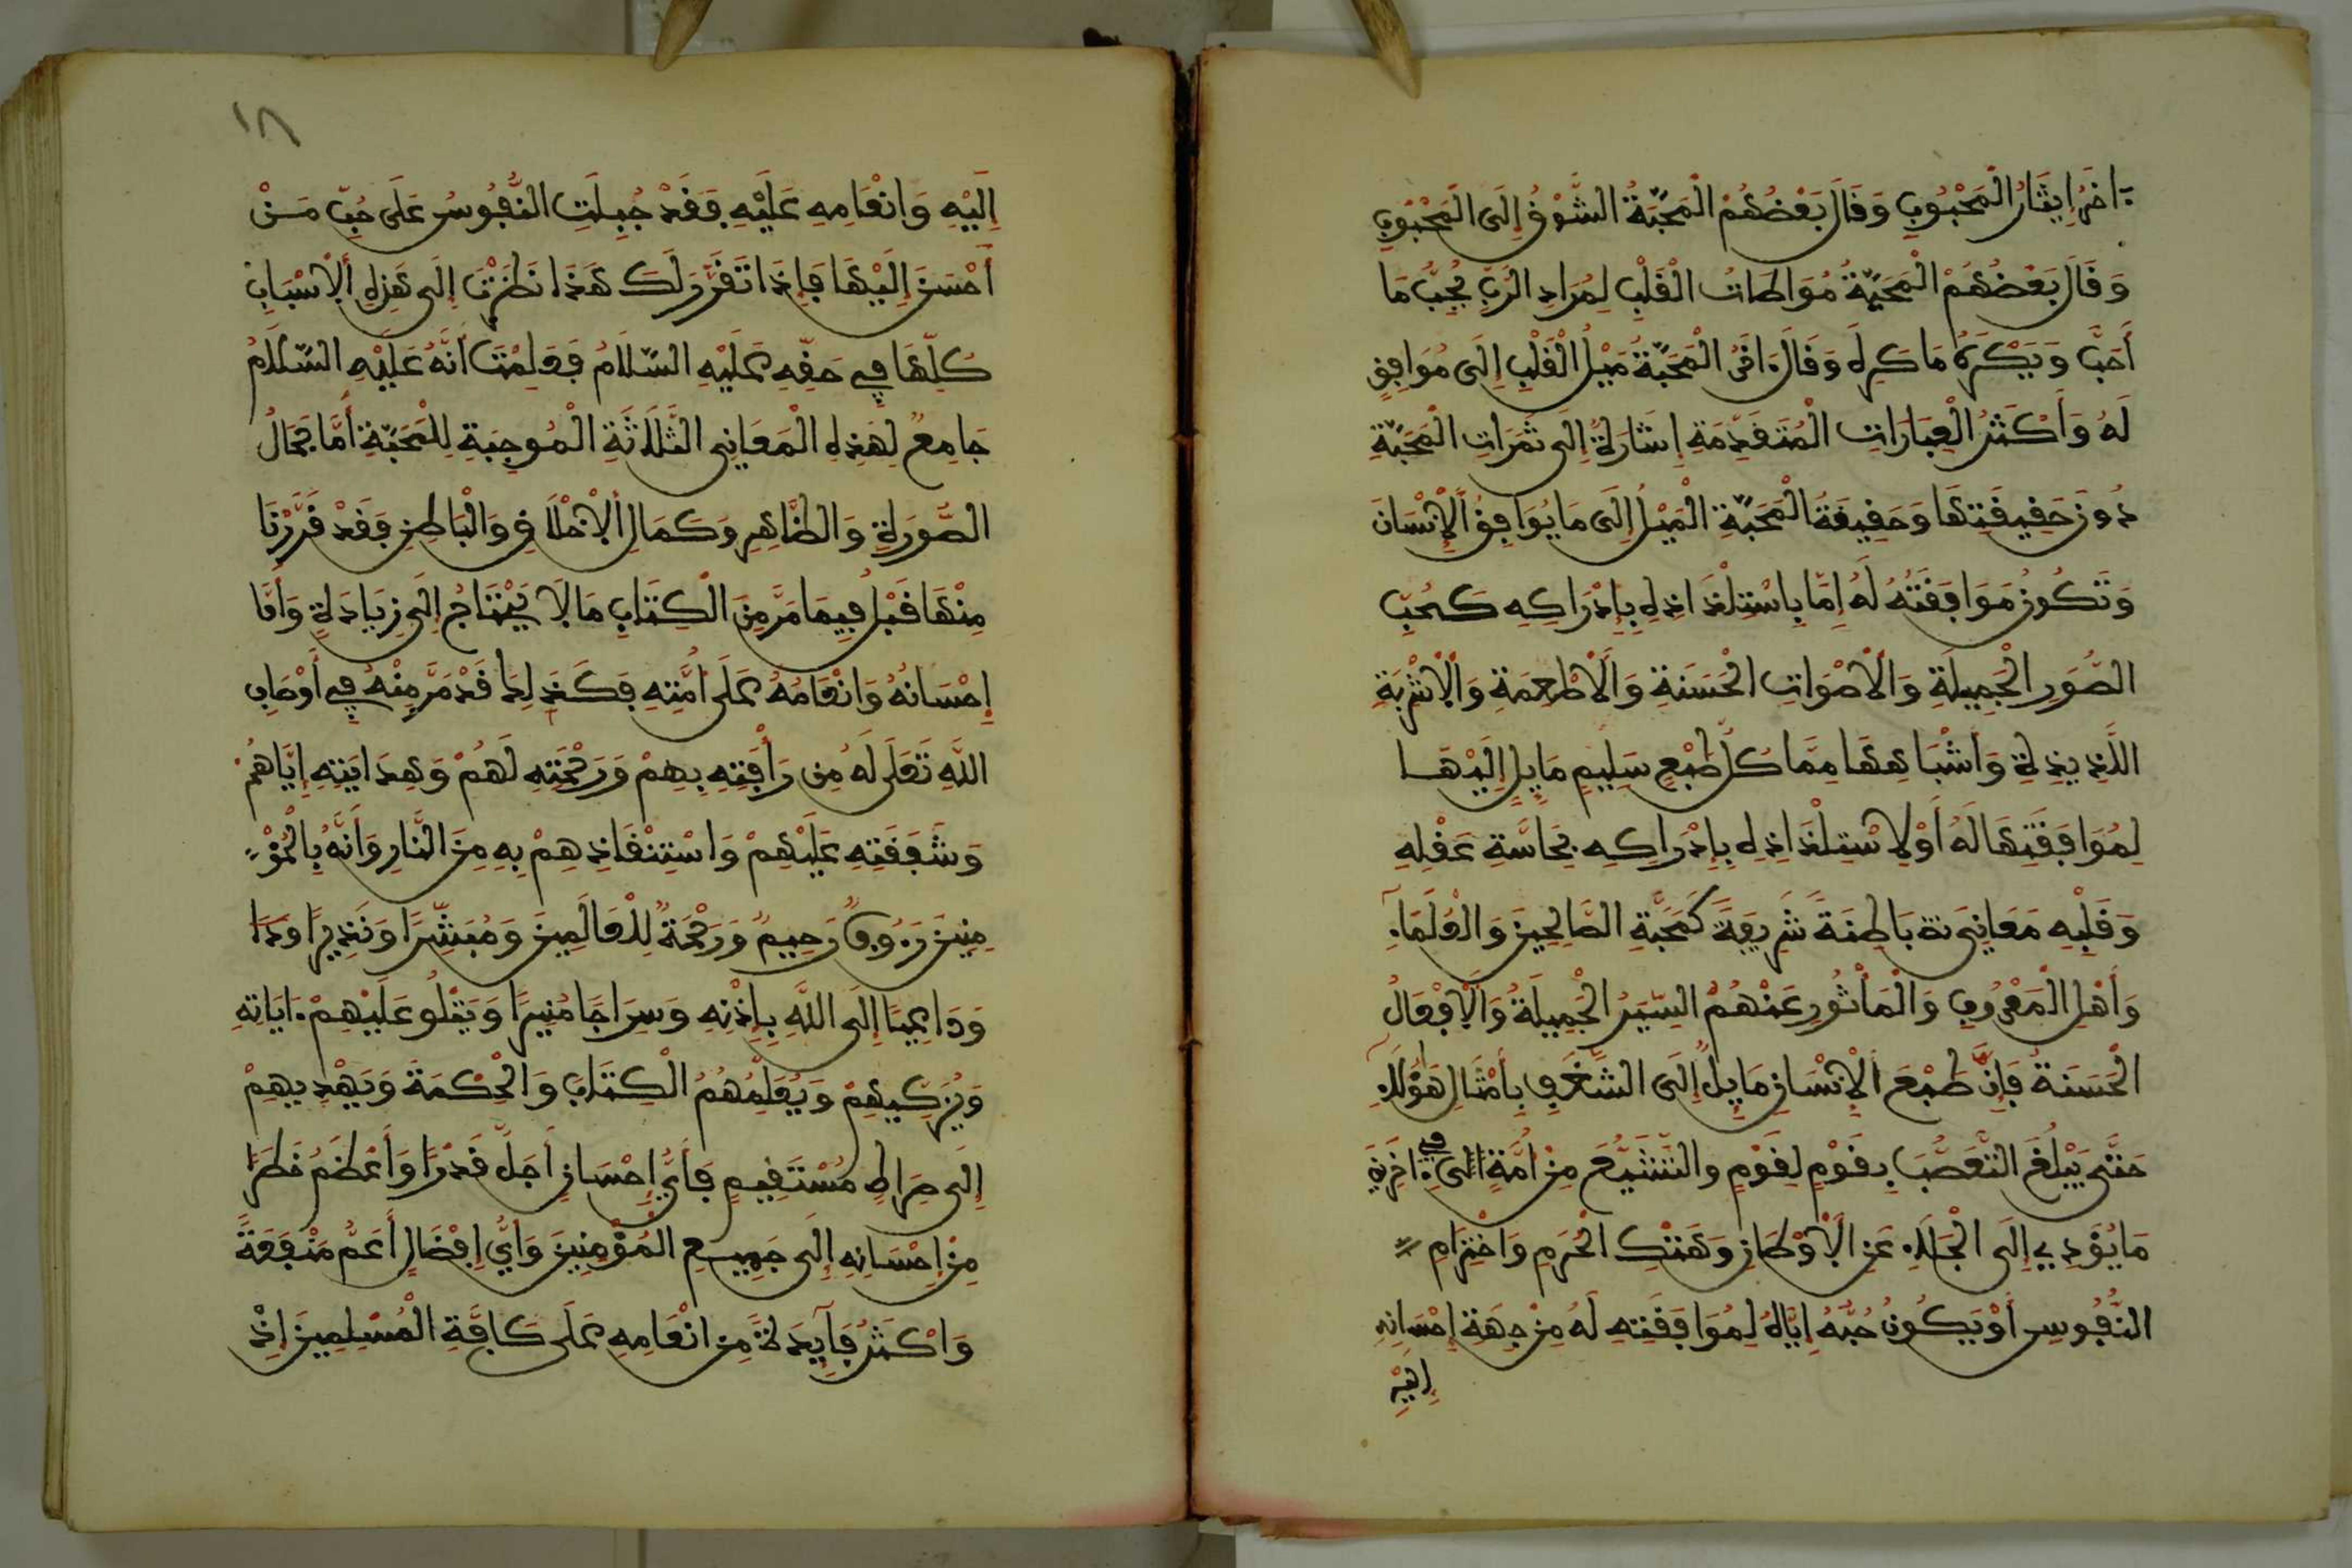 ءَاخَرُ إِيثَارُ الْمَحْبُوبِ وَقَالَ بَعْضُهُمْ الْمَحَبَّةُ الشَّوْقُ إِلَى الْمَحْبُوبِ
وَقَالَ بَعْضُهُمْ الْمَحَبَّةُ مُوَاطَاتُ الْقَلْبِ لِمُرَادِ الرَّبِّ يُحِبُّ مَا
أَحَبَّ وَيَكْرَهُ مَا كَرِهَ وَقَالَ ءَاخَرُ الْمَحَبَّةُ مَيْلُ الْقَلْبِ إِلَى مُوَافِقٍ
لَهُ وَأَكْثَرُ الْعِبَارَاتِ الْمُتَقَدِّمَةِ إِشَارَةٌ إِلَى ثَمَرَاتِ الْمَحَبَّةِ
دُونَ حَقِيقَتِهَا وَحَقِيقَةُ الْمَحَبَّةِ الْمَيْلُ إِلَى مَا يُوَافِقُ الْإِنْسَانَ
وَتَكُونُ مَوَافَقَتُهُ لَهُ إِمَّا بِاسْتِلْذَاذِهِ بِإِدْرَاكِهِ كَحُبِّ
الصُّوَرِ الْجَمِيلَةِ وَالْأَصْوَاتِ الْحَسَنَةِ وَالْأَطْعِمَةِ وَالْأَشْرِبَةِ
اللَّذِيذَةِ وَأَشْبَاهِهَا مِمَّا كُلُّ طَبْعٍ سَلِيمٍ مَايِلٍ إِلَيْهَا
لِمُوَافَقَتِهَا لَهُ أَوْ لِاسْتِلْذَاذِهِ بِإِدْرَاكِهِ بِحَاسَّةِ عَقْلِهِ
وَقَلْبِهِ مَعَانِيَ بَاطِنَةً شَرِيفَةً كَمَحَبَّةِ الصَّالِحِينَ وَالْعُلَمَاءِ
وَأَهْلِ الْمَعْرُوفِ وَالْمَأْثُورِ عَنْهُمُ السِّيَرُ الْجَمِيلَةُ وَالْأَفْعَالُ
الْحَسَنَةُ فَإِنَّ طَبْعَ الْإِنْسَانِ مَايِلٌ إِلَى الشَّغَفِ بِأَمْثَالِ هَؤُلَاءِ
حَتَّى يَبْلُغَ التَّعَصُّبَ بِقَوْمٍ لِقَوْمٍ وَالتَّشَيُّعَ مِنْ أُمَّةٍ إلى في ءَاخَرِينَ
مَا يُؤَدِّي إِلَى الْجَلَاءِ عَنِ الْأَوْطَانِ وَهَتْكِ الْحُرَمِ وَاخْتِرَامِ
النُّفُوسِ أَوْ يَكُونُ حُبُّهُ إِيَّاهُ لِمُوَافَقَتِهِ لَهُ مِنْ جِهَةِ إِحْسَانِهِ
إِلَيْهِ
١٨
إِلَيْهِ وَإِنْعَامِهِ عَلَيْهِ فَقَدْ جُبِلَتِ النُّفُوسُ عَلَى حُبِّ مَنْ
أَحْسَنَ إِلَيْهَا فَإِذَا تَقَرَّرَ لَكَ هَذَا نَظَرْتَ إِلَى هَذِهِ الْأَسْبَابِ
كُلِّهَا فِي حَقِّهِ عَلَيْهِ السَّلَامُ فَعَلِمْتَ أَنَّهُ عَلَيْهِ السَّلَامُ
جَامِعٌ لِهَذِهِ الْمَعَانِي الثَّلَاثَةِ الْمُوجِبَةِ لِلْمَحَبَّةِ أَمَّا جَمَالُ
الصُّورَةِ وَالظَّاهِرِ وَكَمَالِ الْأَخْلَاقِ وَالْبَاطِنِ فَقَدْ قَرَّرْنَا
مِنْهَا قَبْلُ فِيمَا مَرَّ مِنَ الْكِتَابِ مَا لَا يَحْتَاجُ إِلَى زِيَادَةٍ وَأَمَّا
إِحْسَانُهُ وَإِنْعَامُهُ عَلَى أُمَّتِهِ فَكَذَلِكَ قَدْ مَرَّ مِنْهُ فِي أَوْصَافِ
اللَّهِ تَعَلَى لَهُ مِن رَأْفَتِهِ بِهِمْ وَرَحْمَتِهِ لَهُمْ وَهِدَايَتِهِ إِيَّاهُمْ
وَشَفَقَتِهِ عَلَيْهِمْ وَاسْتِنْقَاذِهِمْ بِهِ مِنَ النَّارِ وَأَنَّهُ بِالْمُؤْ
مِنِينَ رَءُوفٌ رَحِيمٌ وَرَحْمَةٌ لِلْعَالَمِينَ وَمُبَشِّرًا وَنَذِيرًا وَدَا
وَدَاعِيًا إِلَى اللَّهِ بِإِذْنِهِ وَسِرَاجًا مُنِيرًا وَيَتْلُو عَلَيْهِمْ ءَايَاتِهِ
وَيُزَكِّيهِمْ وَيُعَلِّمُهُمُ الْكِتَابَ وَالْحِكْمَةَ وَيَهْدِيهِمْ
إِلَى صِرَاطٍ مُسْتَقِيمٍ فَأَيُّ إِحْسَانٍ أَجَلُّ قَدْرًا وَأَعْظَمُ خَطَرًا
مِنْ إِحْسَانِهِ إِلَى جَمِيعِ الْمُؤْمِنِينَ وَأَيُّ إِفْضَالٍ أَعَمُّ مَنْفَعَةً
وَأَكْثَرُ فَآيِدَةً مِنْ إِنْعَامِهِ عَلَى كَافَّةِ الْمُسْلِمِينَ إِذْ